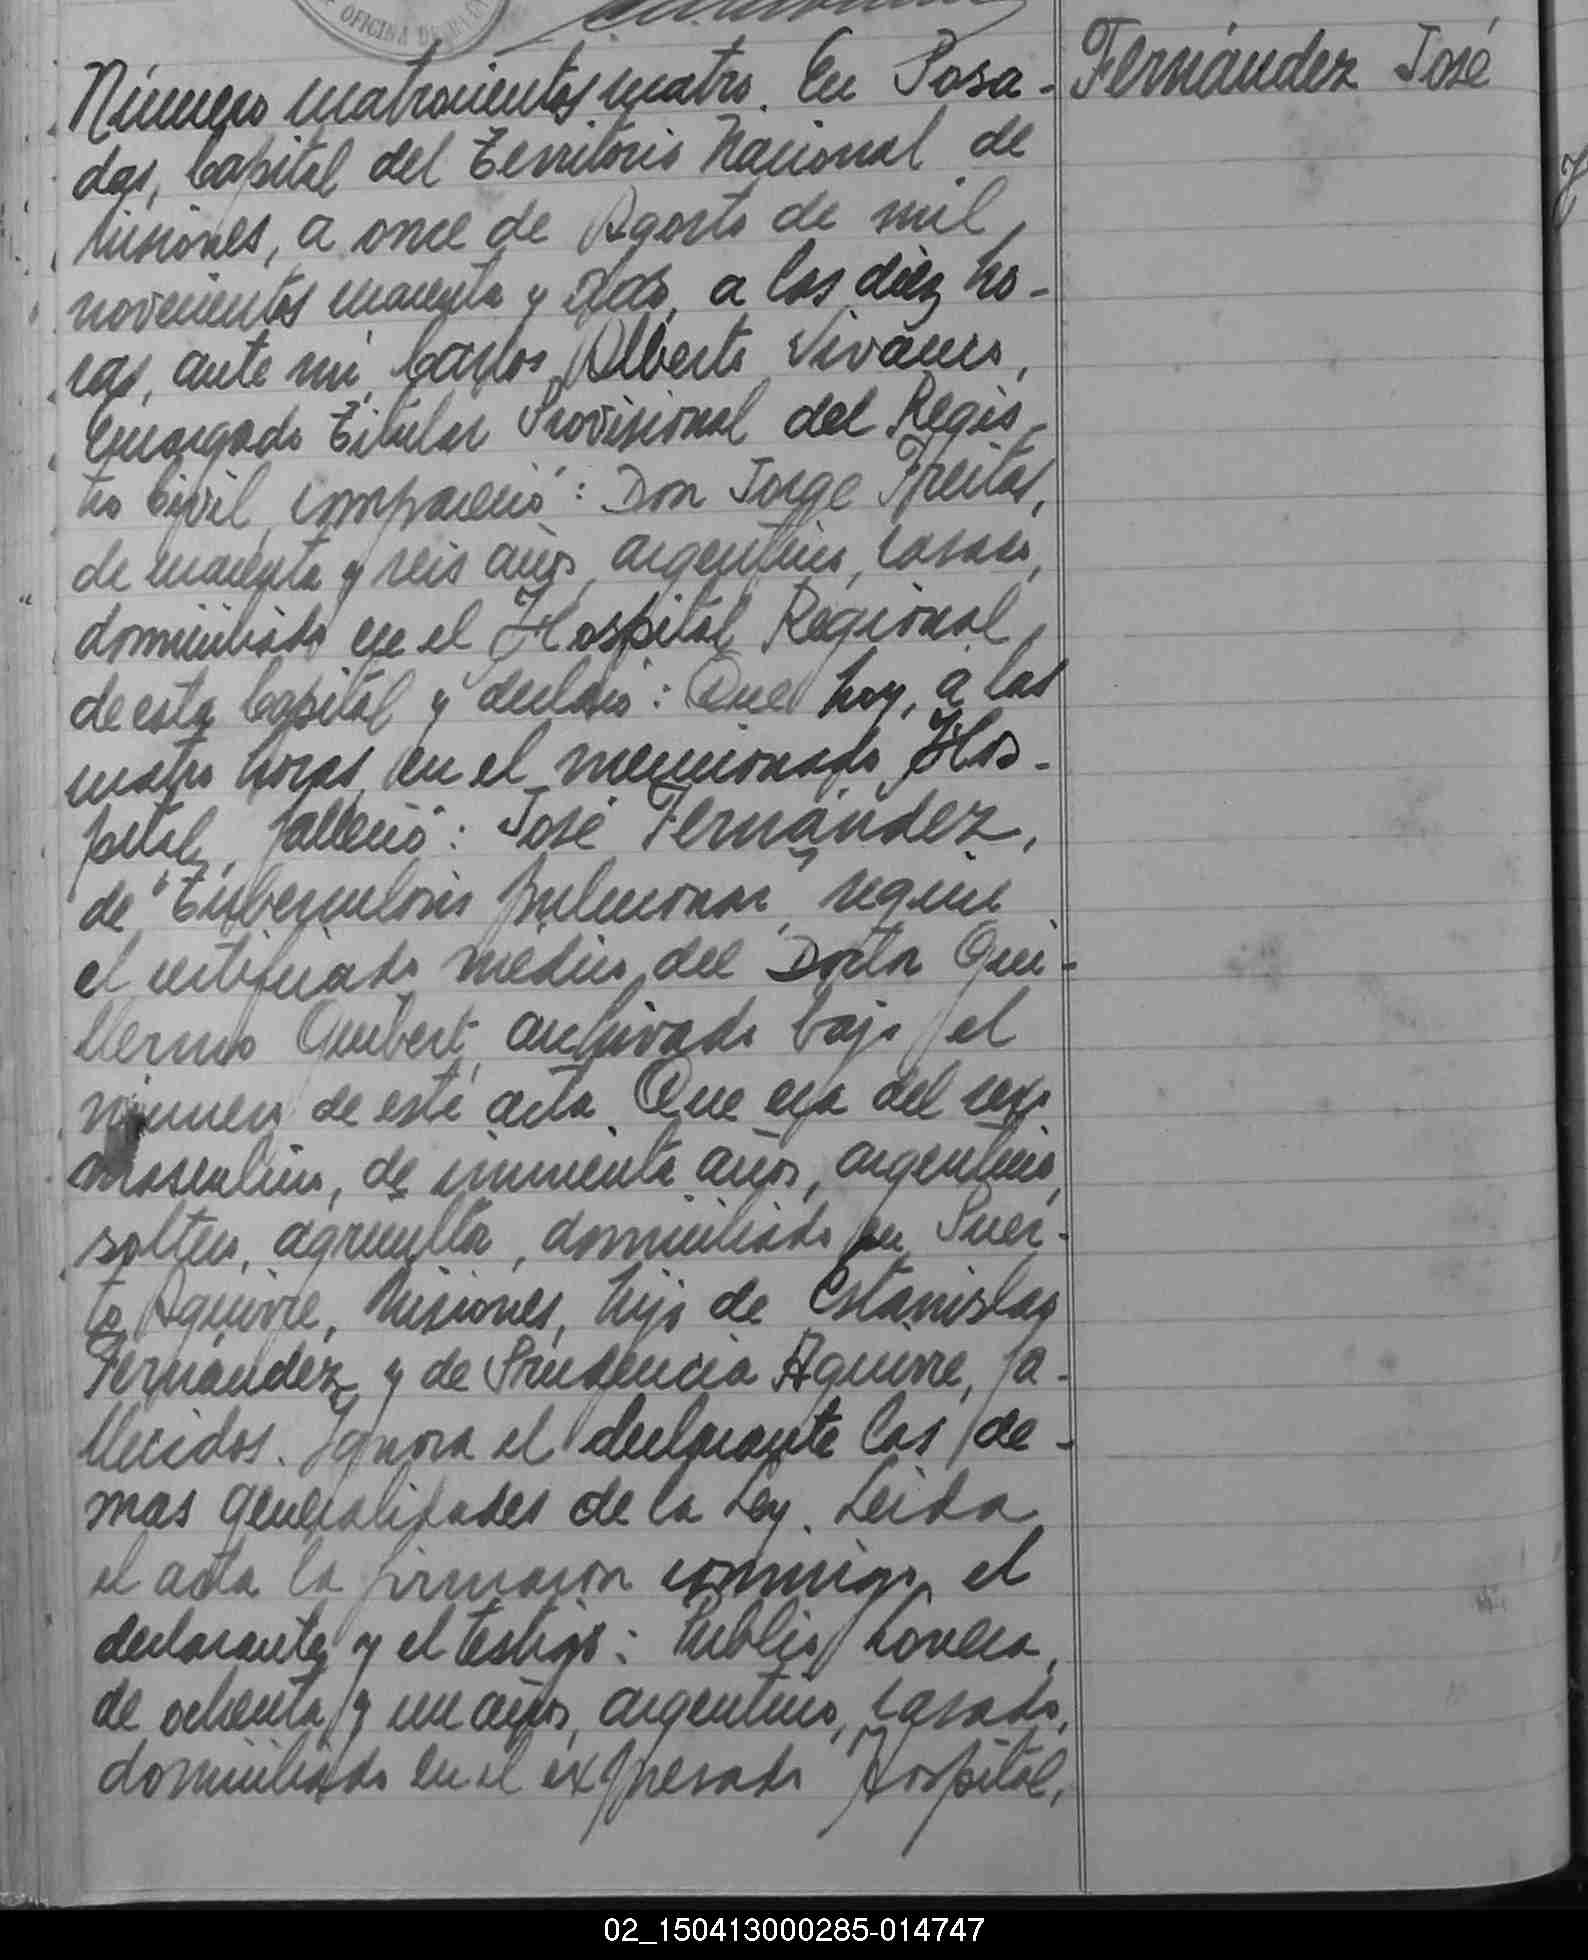 OFICINA DE
Fernández José
Número cuatrocientos cuatro. En Posa-
das, Capital del Territorio Nacional de
Misiones, a once de Agosto de mil
novecientos cuarenta y dos, a las diez ho-
ras, ante mí, Carlos Alberto Vivanco,
Encargado Titular Provisional del Regis-
tro Civil, compareció: Don Jorge Freitas,
de cuarenta y seis años, argentino, casado,
domiciliado en el Hospital Regional,
de esta Capital y declaró: Que hoy, a las
cuatro horas, en el mencionado Hos-
pital, falleció: José Fernández,
de "Tuberculosis pulmonar", según
el certificado médico del Doctor Gui-
llermo, archivado bajo el
número de esté acta. Que era del sexo
masculino, de cincuenta años, argentino,
soltero, agricultor, domiciliado en Puer-
to Aguirre, Misiones, hijo de Estanislao
Fernández y de Prudencia Aguirre, fa-
llecidos. Ignora el declarante las de-
mas generalidades de la Ley. Leida
el acta la firmaron conmigo, el
declarante y el testigo: Publio Lovera,
de ochenta y un años, argentino, casado,
domiciliado en el expresado Hospital,
02_150413000285-014747